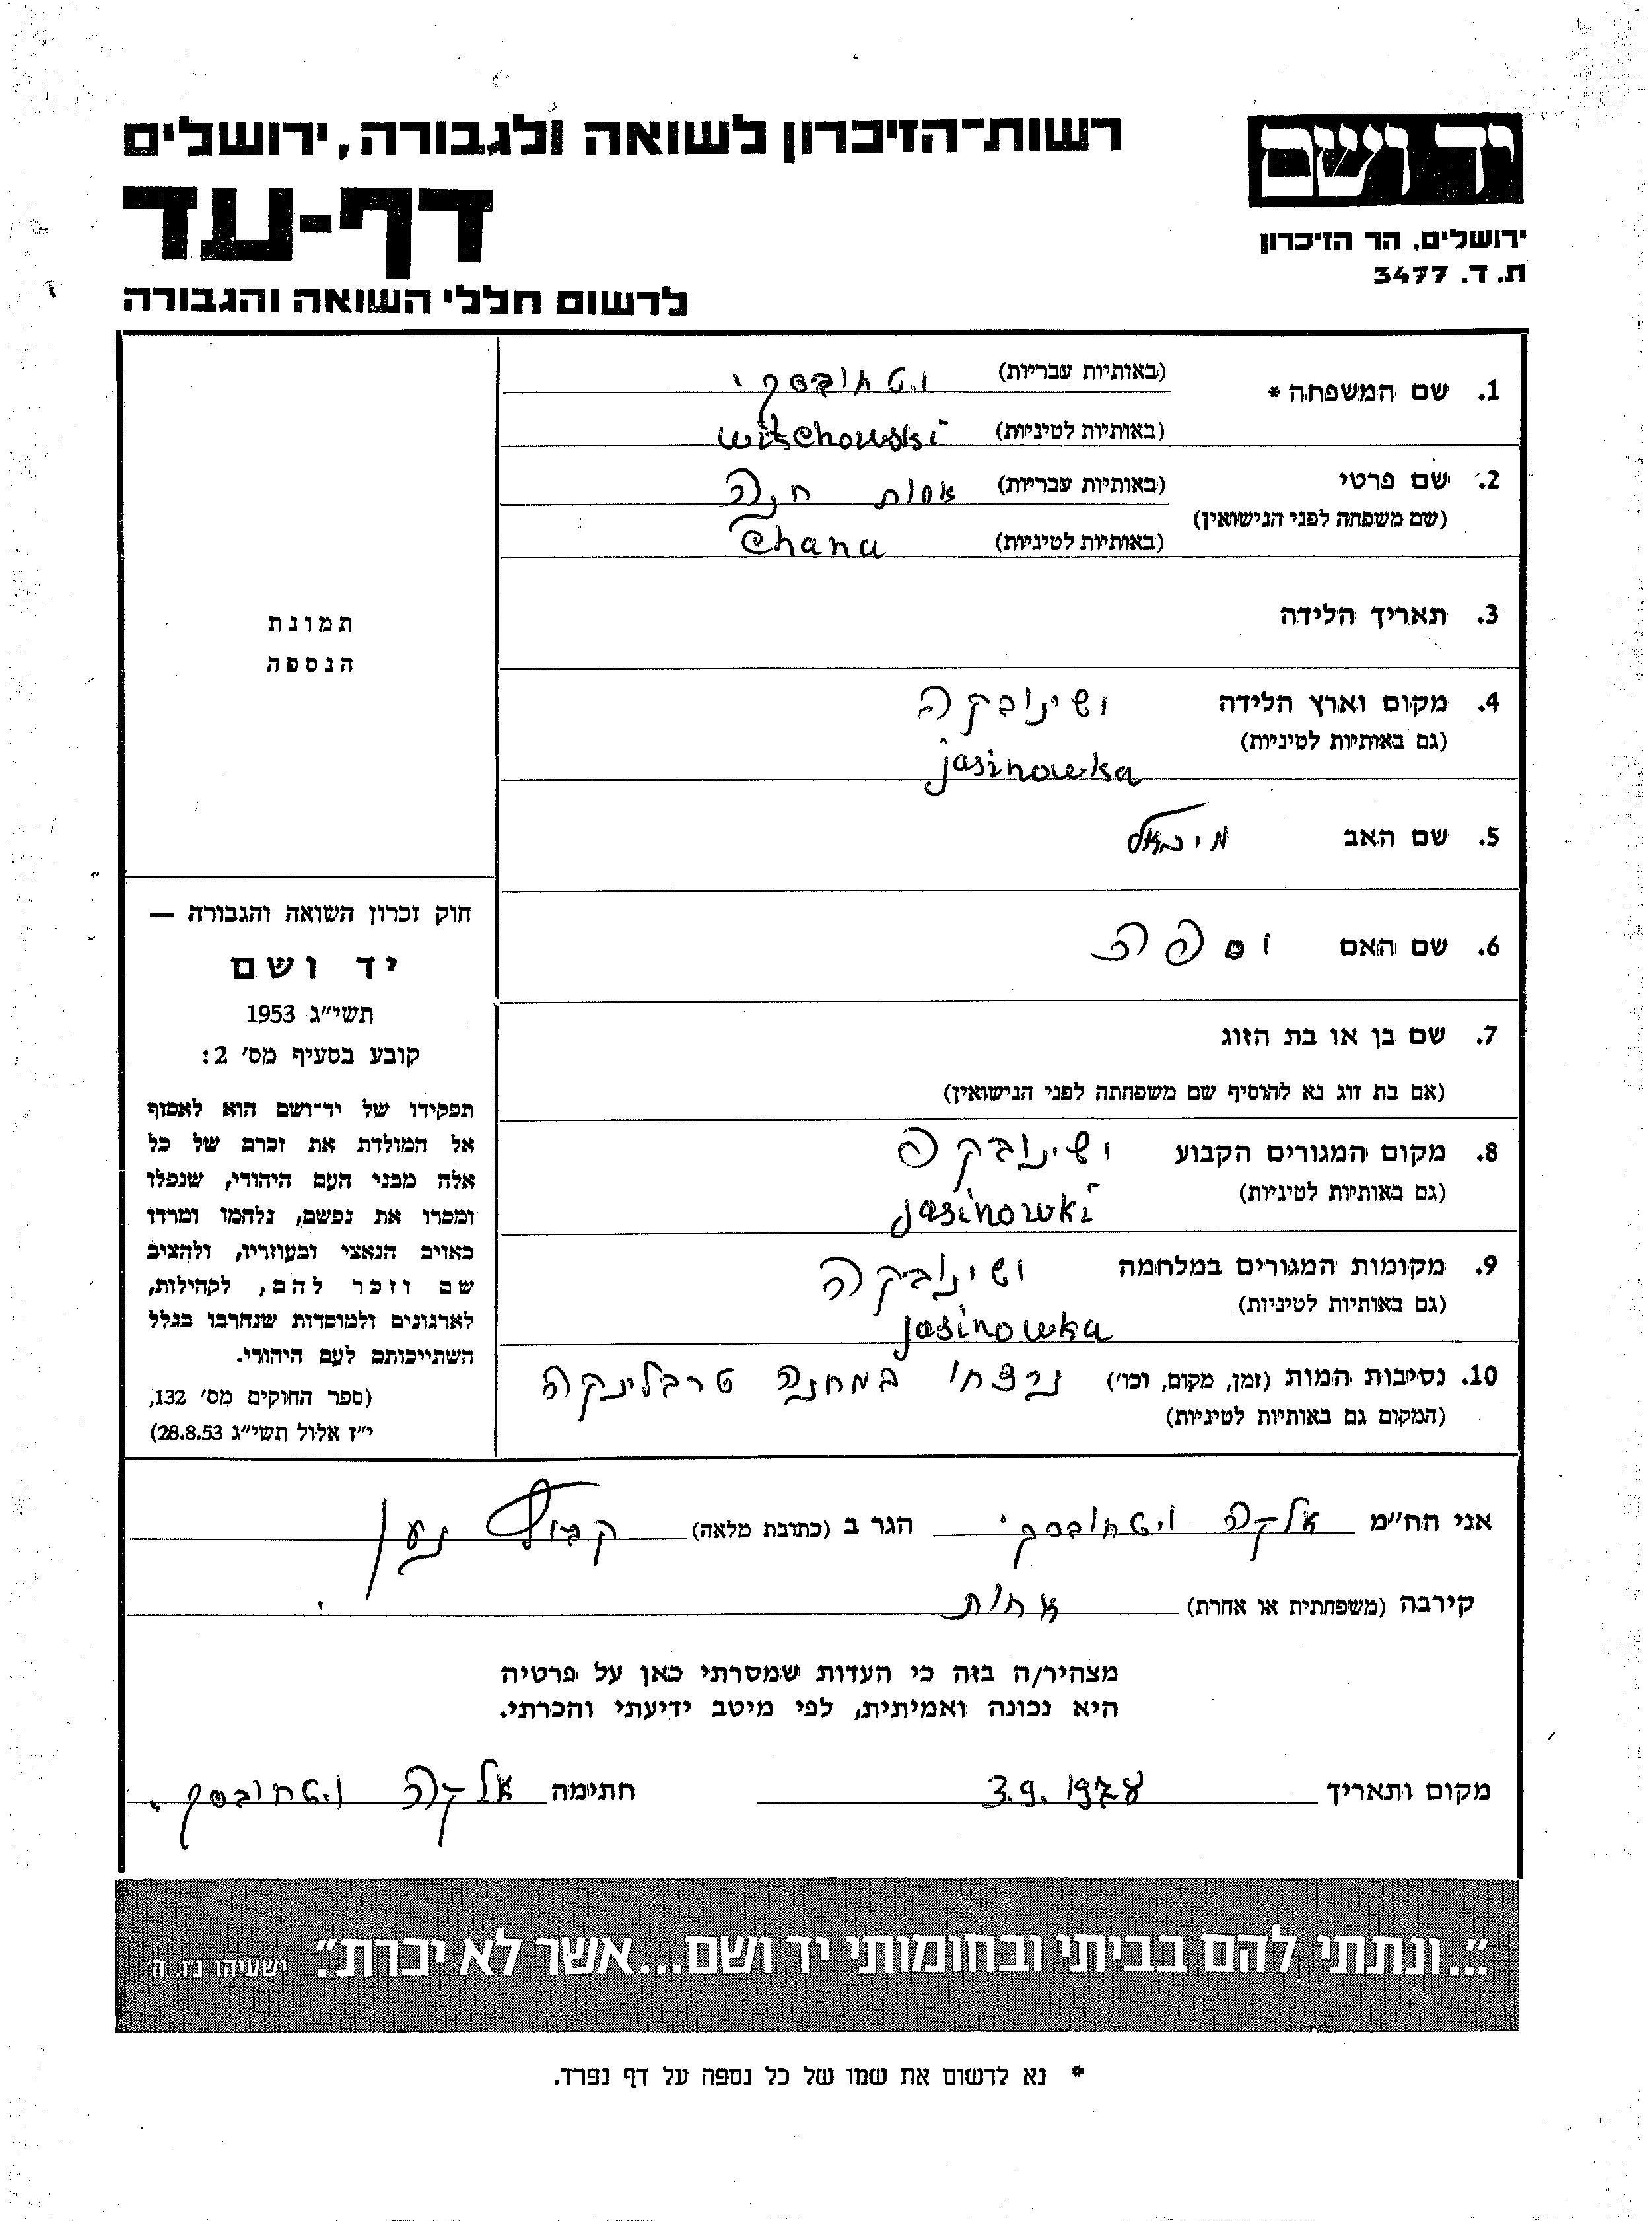 יד ושם
ירושלים, הר הזיכרון
ת. ד. 3477
רשות־הזיכרון לשואה ולגבורה, ירושלים
דף-עד
לרשום חללי השואה והגבורה
1. שם המשפחה * (באותיות עבריות) ויטחובסקי
(באותיות לטיניות) witschowski
2. שם פרטי (באותיות עבריות) אחות חנה
(שם משפחה לפני הנישואין)
(באותיות לטיניות) Chana
3. תאריך הלידה
4. מקום וארץ הלידה ישינובקה
(גם באותיות לטיניות) jasinowka
5. שם האב מיכאל
6. שם האם
7. שם בן או בת הזוג
(אם בת זוג נא להוסיף שם משפחתה לפני הנישואין)
8. מקום המגורים הקבוע ישינובקה
(גם באותיות לטיניות) jasinowki
9. מקומות המגורים במלחמה ישינובקה
(גם באותיות לטיניות) jasinowka
10. נסיבות המות (זמן, מקום, וכו') נרצחו במחנה טרבלינקה
(המקום גם באותיות לטיניות)
תמונת
הנספה
חוק זכרון השואה והגבורה —
יד ושם
תשי"ג 1953
קובע בסעיף מס' 2:
תפקידו של יד־ושם הוא לאסוף
אל המולדת את זכרם של כל
אלה מבני העם היהודי, שנפלו
ומסרו את נפשם, נלחמו ומרדו
באויב הנאצי ובעוזריו, ולהציב
שם וזכר להם, לקהילות,
לארגונים ולמוסדות שנחרבו בגלל
השתייכותם לעם היהודי.
(ספר החוקים מס' 132,
י"ז אלול תשי"ג 28.8.53)
אני הח"מ אלקה ויטחובסקי הגר ב (כתובת מלאה) קבוץ נען
קירבה (משפחתית או אחרת) אחות
מצהיר/ה בזה כי העדות שמסרתי כאן על פרטיה
היא נכונה ואמיתית, לפי מיטב ידיעתי והכרתי.
מקום ותאריך 3.9.1978 חתימה אלקה ויטחובסקי
"...ונתתי להם בביתי ובחומותי יד ושם...אשר לא יכרת". ישעיהו נו, ה'
* נא לרשום את שמו של כל נספה על דף נפרד.